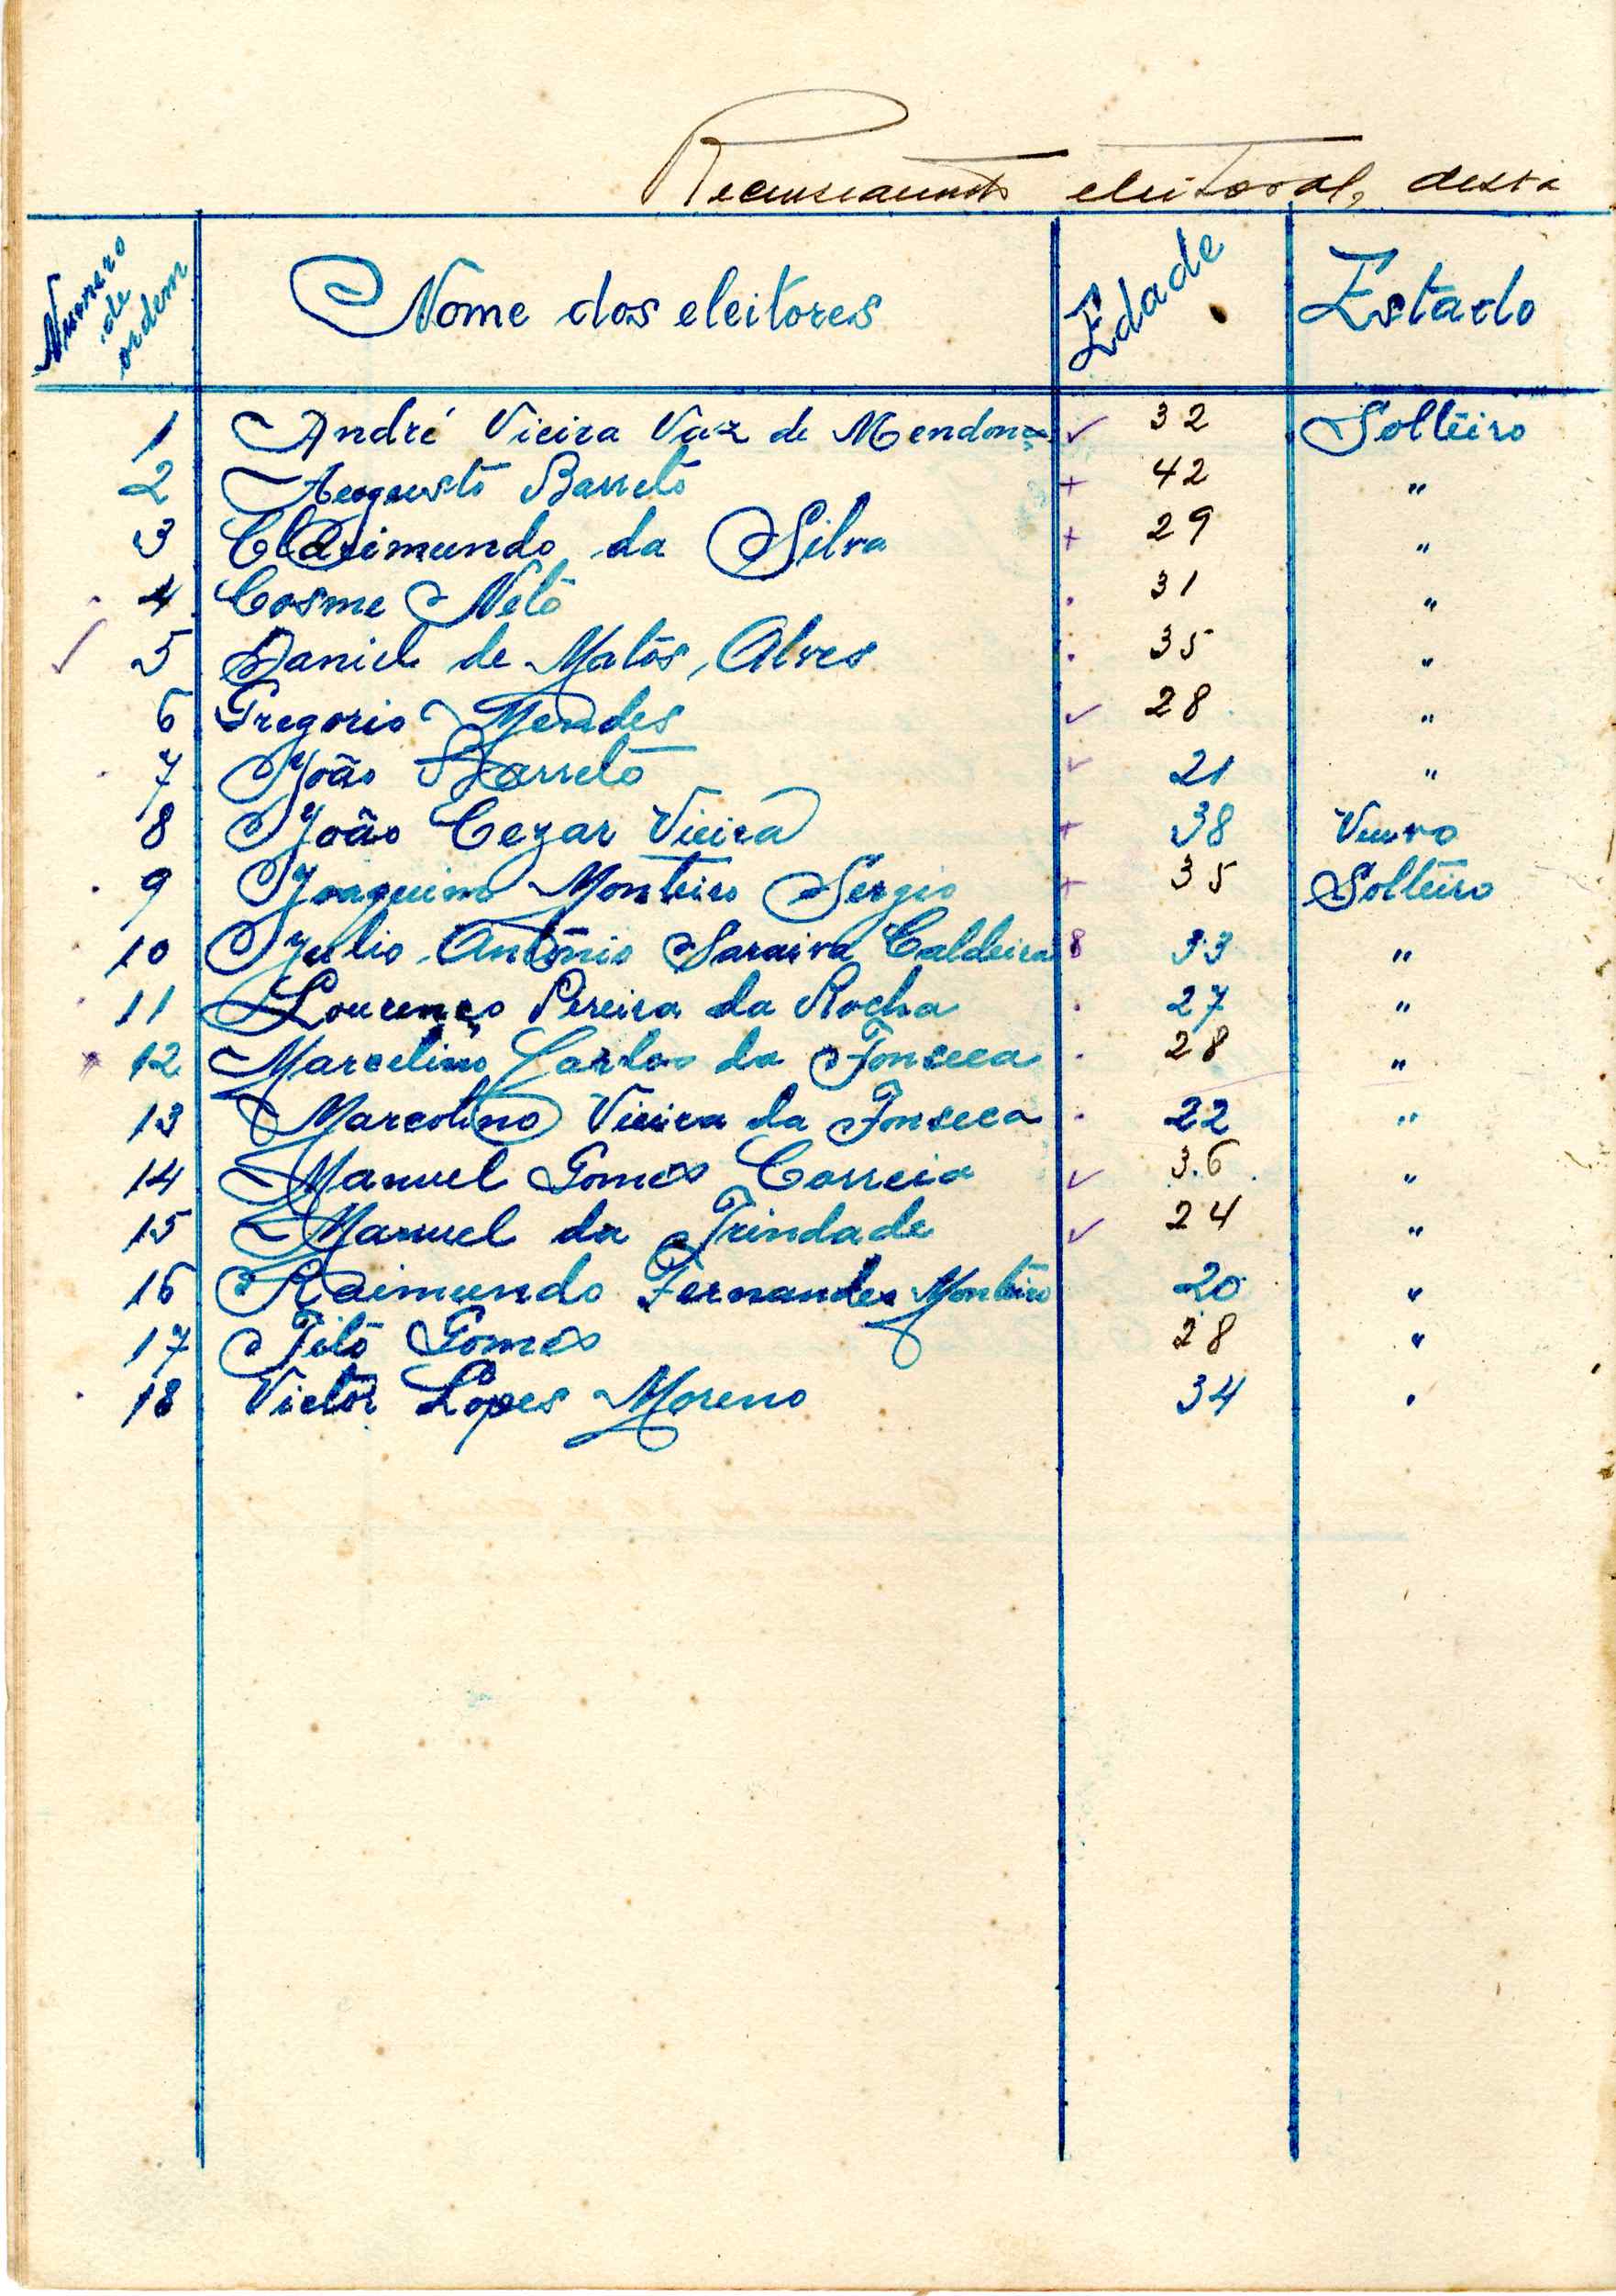 Recenseamento eleitoral, desta
Numero de ordem Nome dos eleitores Edade Estado
1 André Vieira Vaz de Mendonça ✓ 32 Solteiro
2 Augusto Barreto + 42 "
3 Clarimundo da Silva + 29 "
4 Cosme Neto . 31 "
✓ 5 Daniel de Matos Alves . 35 "
6 Gregorio Mendes ✓ 28 "
7 João Barreto ✓ 21 "
8 João Cezar Vieira + 38 Viuvo
9 Joaquim Monteiro Sergio + 35 Solteiro
10 Julio António Saraiva Caldeira 8 33 "
11 Lourenço Pereira da Rocha . 27 "
12 Marcelino Carlos da Fonseca . 28 "
13 Marcolino Vieira da Fonseca . 22 "
14 Manuel Gomes Correia ✓ 36 "
15 Manuel da Trindade ✓ 24 "
16 Raimundo Fernandes Monteiro 20 "
17 Tito Gomes 28 "
18 Victor Lopes Moreno 34 "